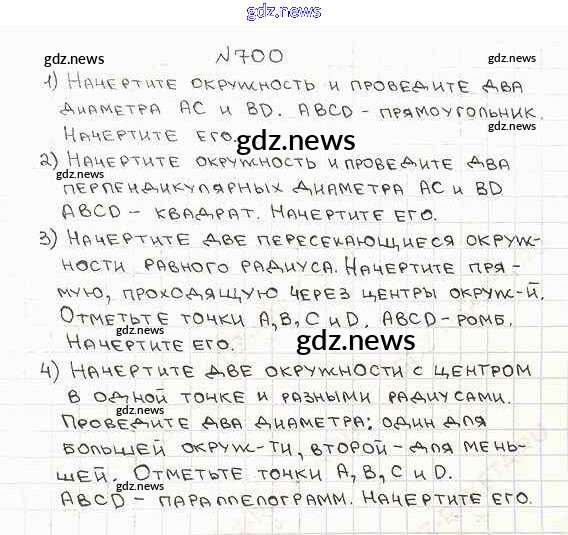 gdz.news
gdz.news №700 gdz.news
1) Начертите окружность и проведите два
диаметра AC и BD. ABCD - прямоугольник.
gdz.news
Начертите его.
gdz.news
2) Начертите окружность и проведите два
gdz.news
перпендикулярных диаметра AC и BD
ABCD - квадрат. Начертите его.
3) Начертите две пересекающиеся окруж-
ности равного радиуса. Начертите пря-
мую, проходящую через центры окруж-й.
Отметьте точки A, B, C и D. ABCD - ромб.
gdz.news
Начертите его.
gdz.news
4) Начертите две окружности с центром
в одной точке и разными радиусами.
gdz.news
Проведите два диаметра: один для
большей окруж-ти, второй - для мень-
шей. Отметьте точки A, B, C и D.
gdz.news
ABCD - параллелограмм. Начертите его.
gdz.news